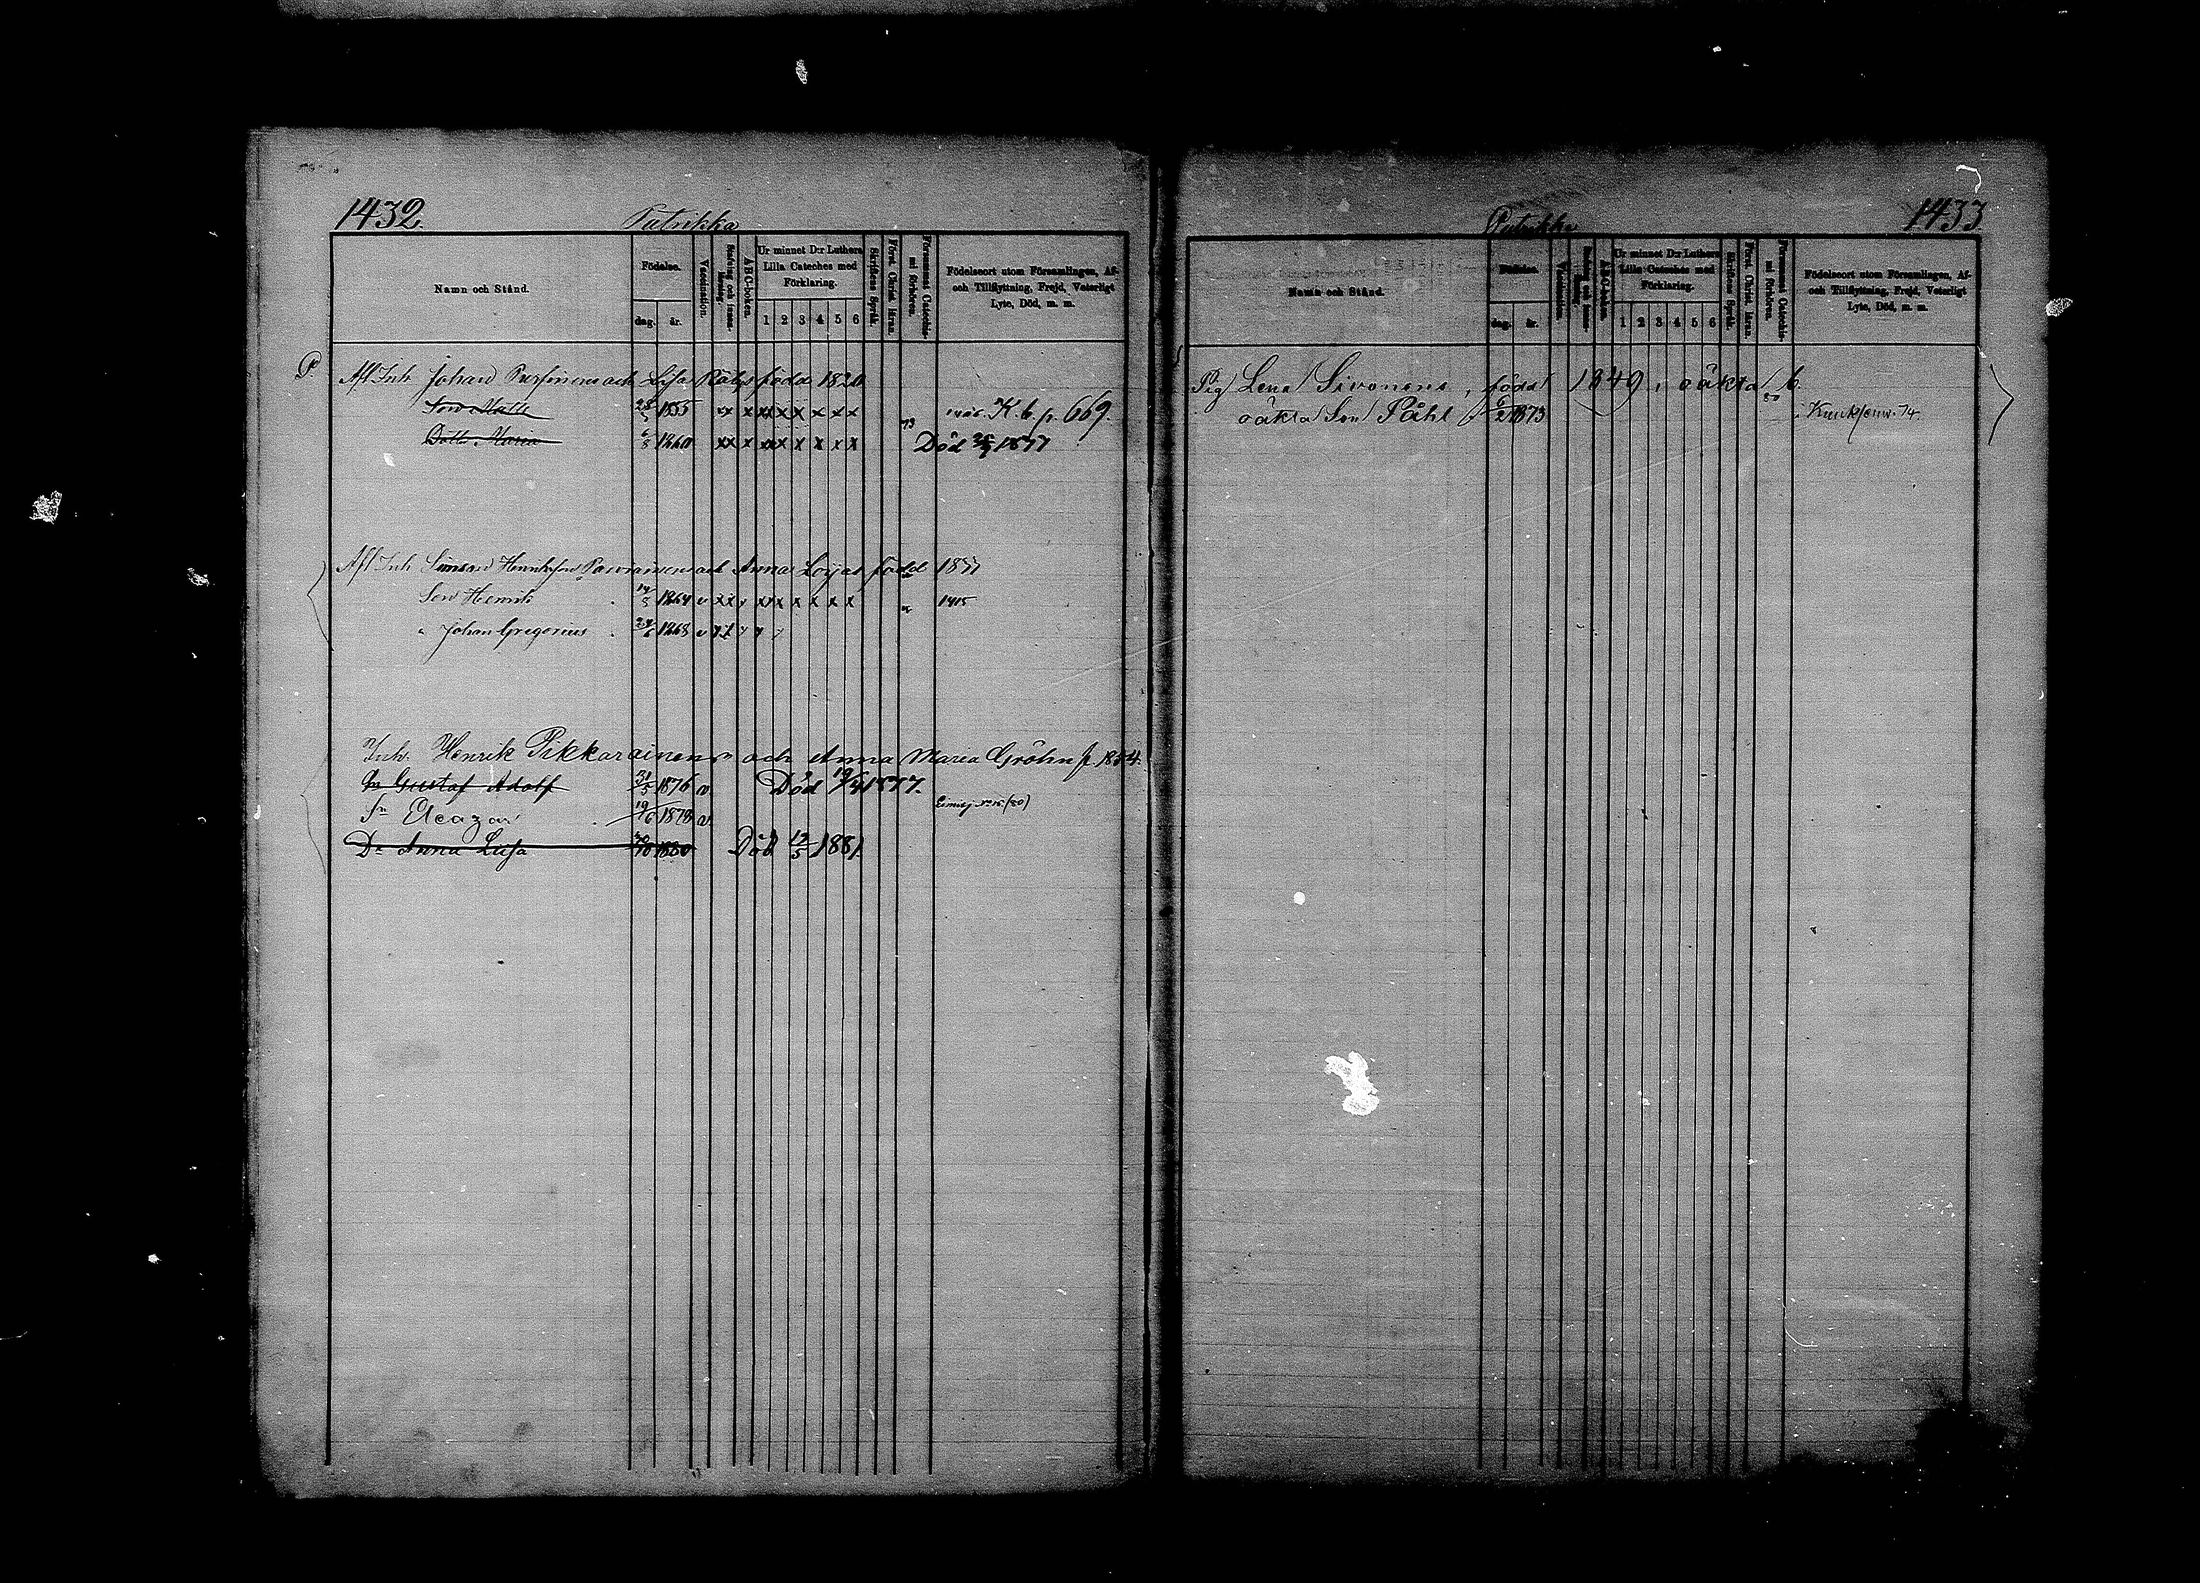 1432.
Putrikka
Namn och Stånd.
Födelse.
dag.
år.
Vaccination.
A B C-boken.
Ur minnet D:r Luthers
Lilla Cateches med
Förklaring.
1 2 3 4 5 6
Skriftens Språk.
Först. Christ. läran.
Försummat Catechis-
mi förhören.
Födelseort utom Församlingen, Af-
och Tillflyttning, Frejd, Veterligt
Lyte, Död, m. m.
P.
Afl Inh Johan och Lisa född 1820
Son Matts 1855 x x x x x x x x 73 K. b. p. 669.
Dottr Maria 6/8 1860 xx x xx x x x x x Död 1877
Afl Inh Simon Henriksson och Anna född 1837
Son Henrik 1864 v xx xx x x x x x 1415
" Johan Gregorius 29/6 1868 v
Inh. Henrik Pikkarainen och Anna Maria Gröhn f. 1854.
Sn Gustaf Adolf 31/5 1876 v. Död 19/4 1877.
Sn Eleazar 19/6 1878 v.
Dr Anna Lisa 1880 Död 12/5 1881.
1433
Putrikka
Namn och Stånd.
Födelse.
dag.
år.
Vaccination.
A B C-boken.
Ur minnet D:r Luthers
Lilla Cateches med
Förklaring.
1 2 3 4 5 6
Skriftens Språk.
Först. Christ. läran.
Försummat Catechis-
mi förhören.
Födelseort utom Församlingen, Af-
och Tillflyttning, Frejd, Veterligt
Lyte, Död, m. m.
Pig Lena Sivonens, född 1849, oäkta b.
oäkta Son Påhl 6/2 1873